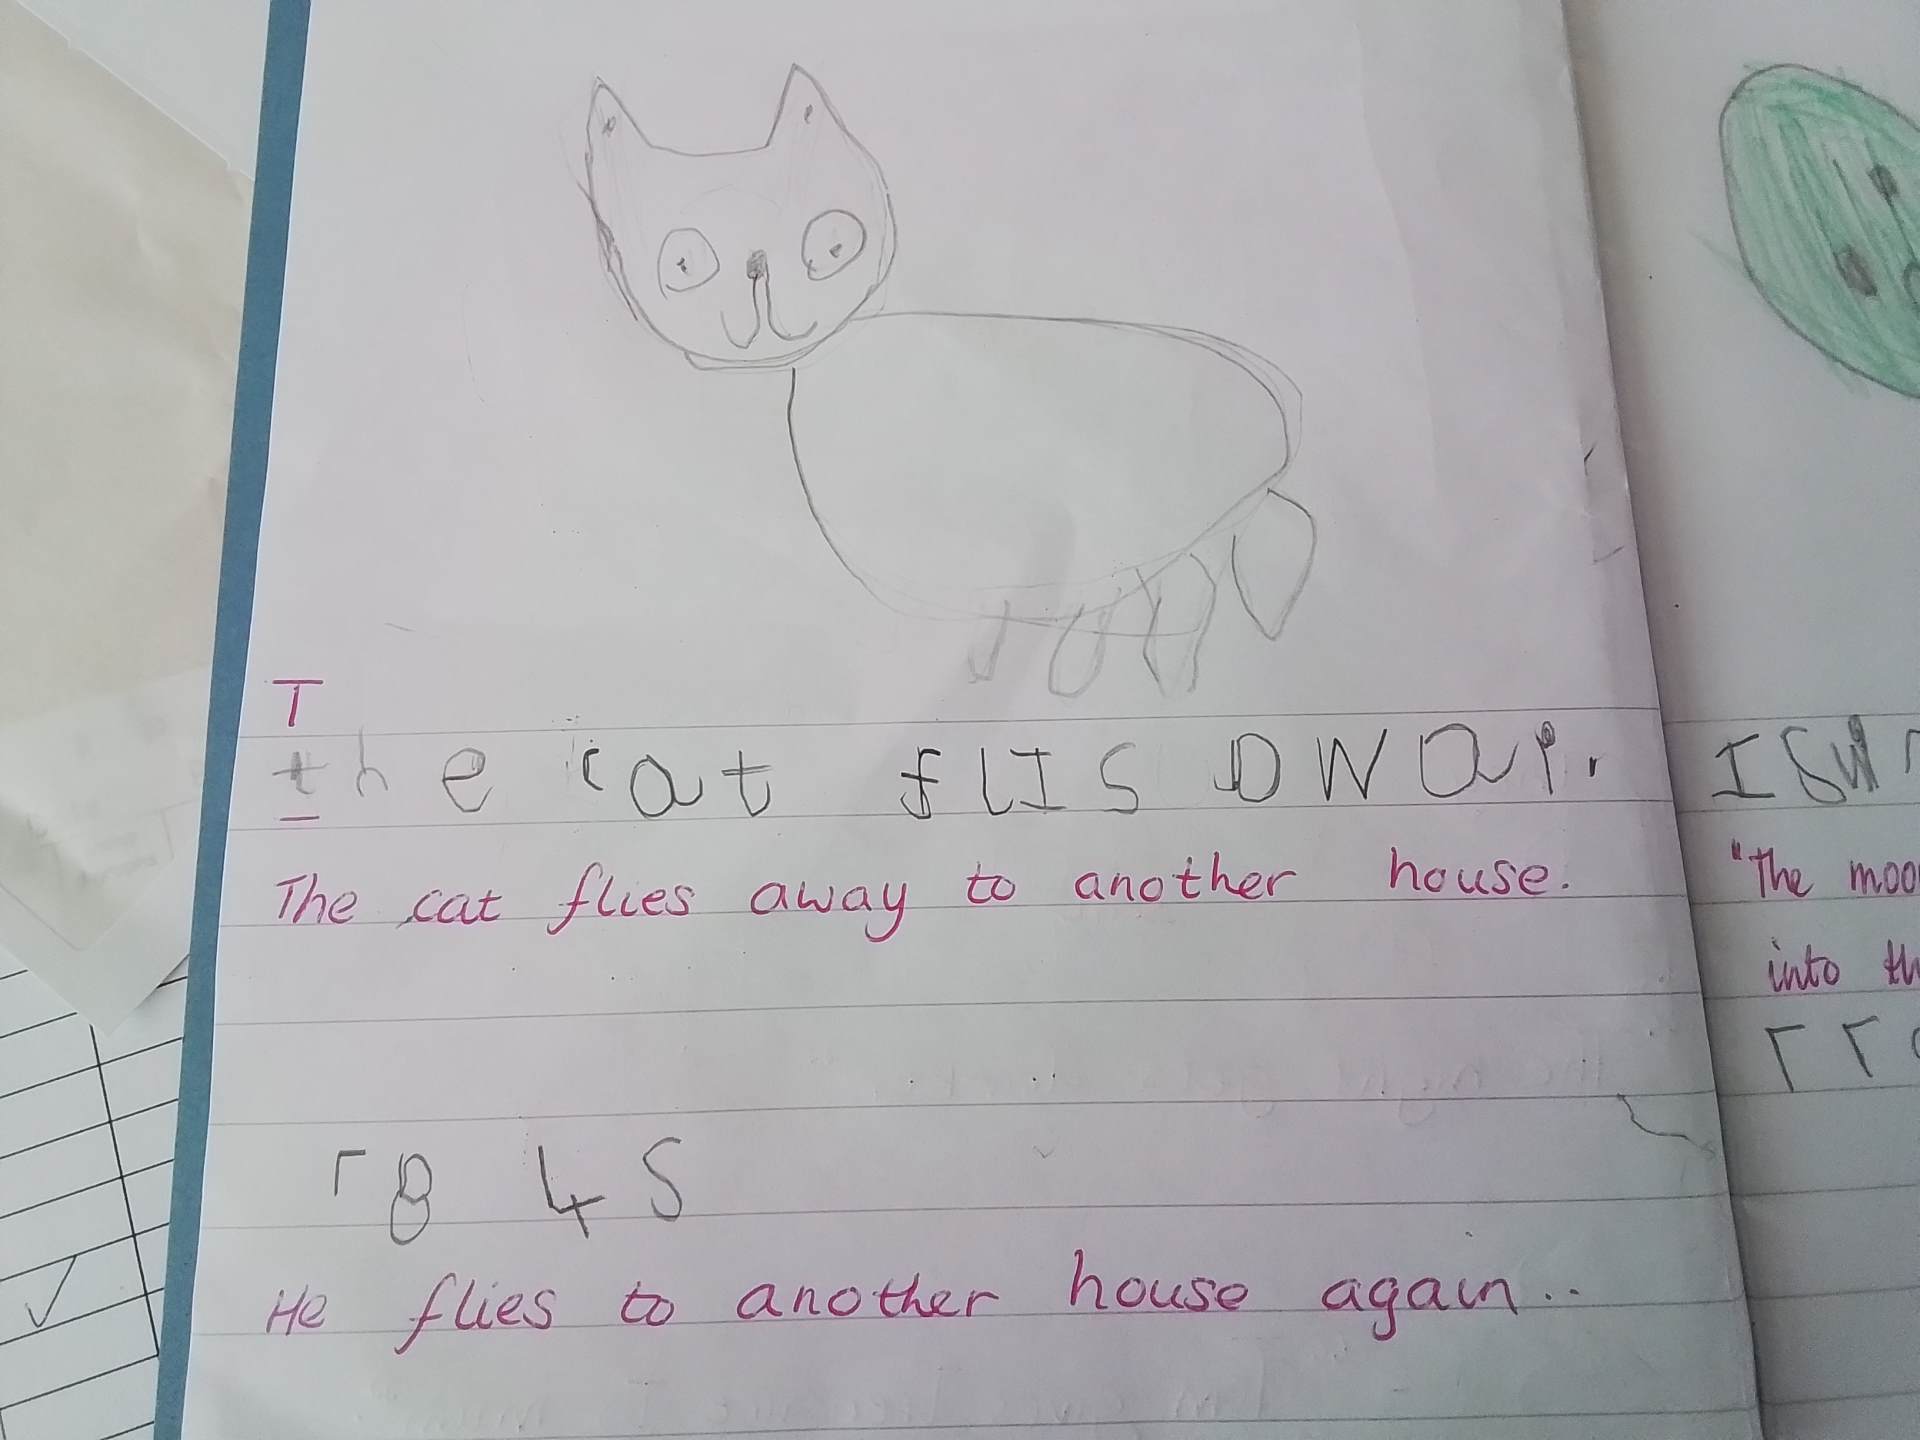 T
the cat flIS awar.
The cat flies away to another house.
r8 4S
He flies to another house again..
ISW
"The moo
into th
rr